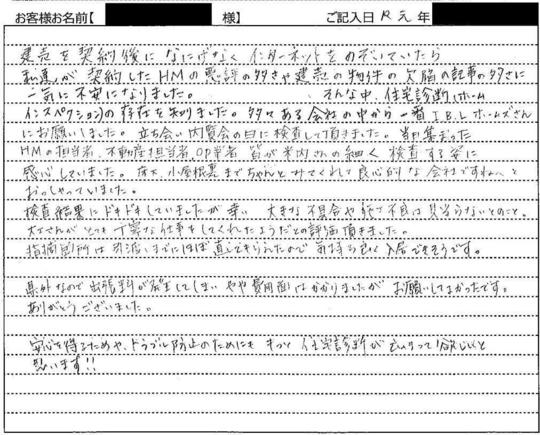 お客様お名前【 様】 ご記入日 R元年
建売を契約後になにげなくインターネットをのぞいていたら
私達が契約したHMの悪評の多さや建売の物件の欠陥の記事の多さに
一気に不安になりました。 そんな中、住宅診断、ホーム
インスペクションの存在を知りました。多々ある会社の中から一番I.B.Lホームズさん
にお願いしました。立ち会い内覧会の日に検査して頂きました。当日集まった
HMの担当者、不動産担当者、 皆が米内さんの細く検査する姿に
感心していました。床下、小屋根裏までちゃんとみてくれて良心的な会社ですね〜と
おっしゃっていました。
検査結果にドキドキしていましたが幸い 大きな不具合や施工不良は見当らないとのこと。
大工さんがとても丁寧な仕事をしてくれたようだとの評価頂きました。
指摘箇所は引渡しまでにほぼ直してもらえたので気持ち良く入居できそうです。
県外なので出張料が発生してしまいやや費用面はかかりましたがお願いしてよかったです。
ありがとうございました。
安心を得るためや、トラブル防止のためにももっと住宅診断が広まって欲しいと
思います!!